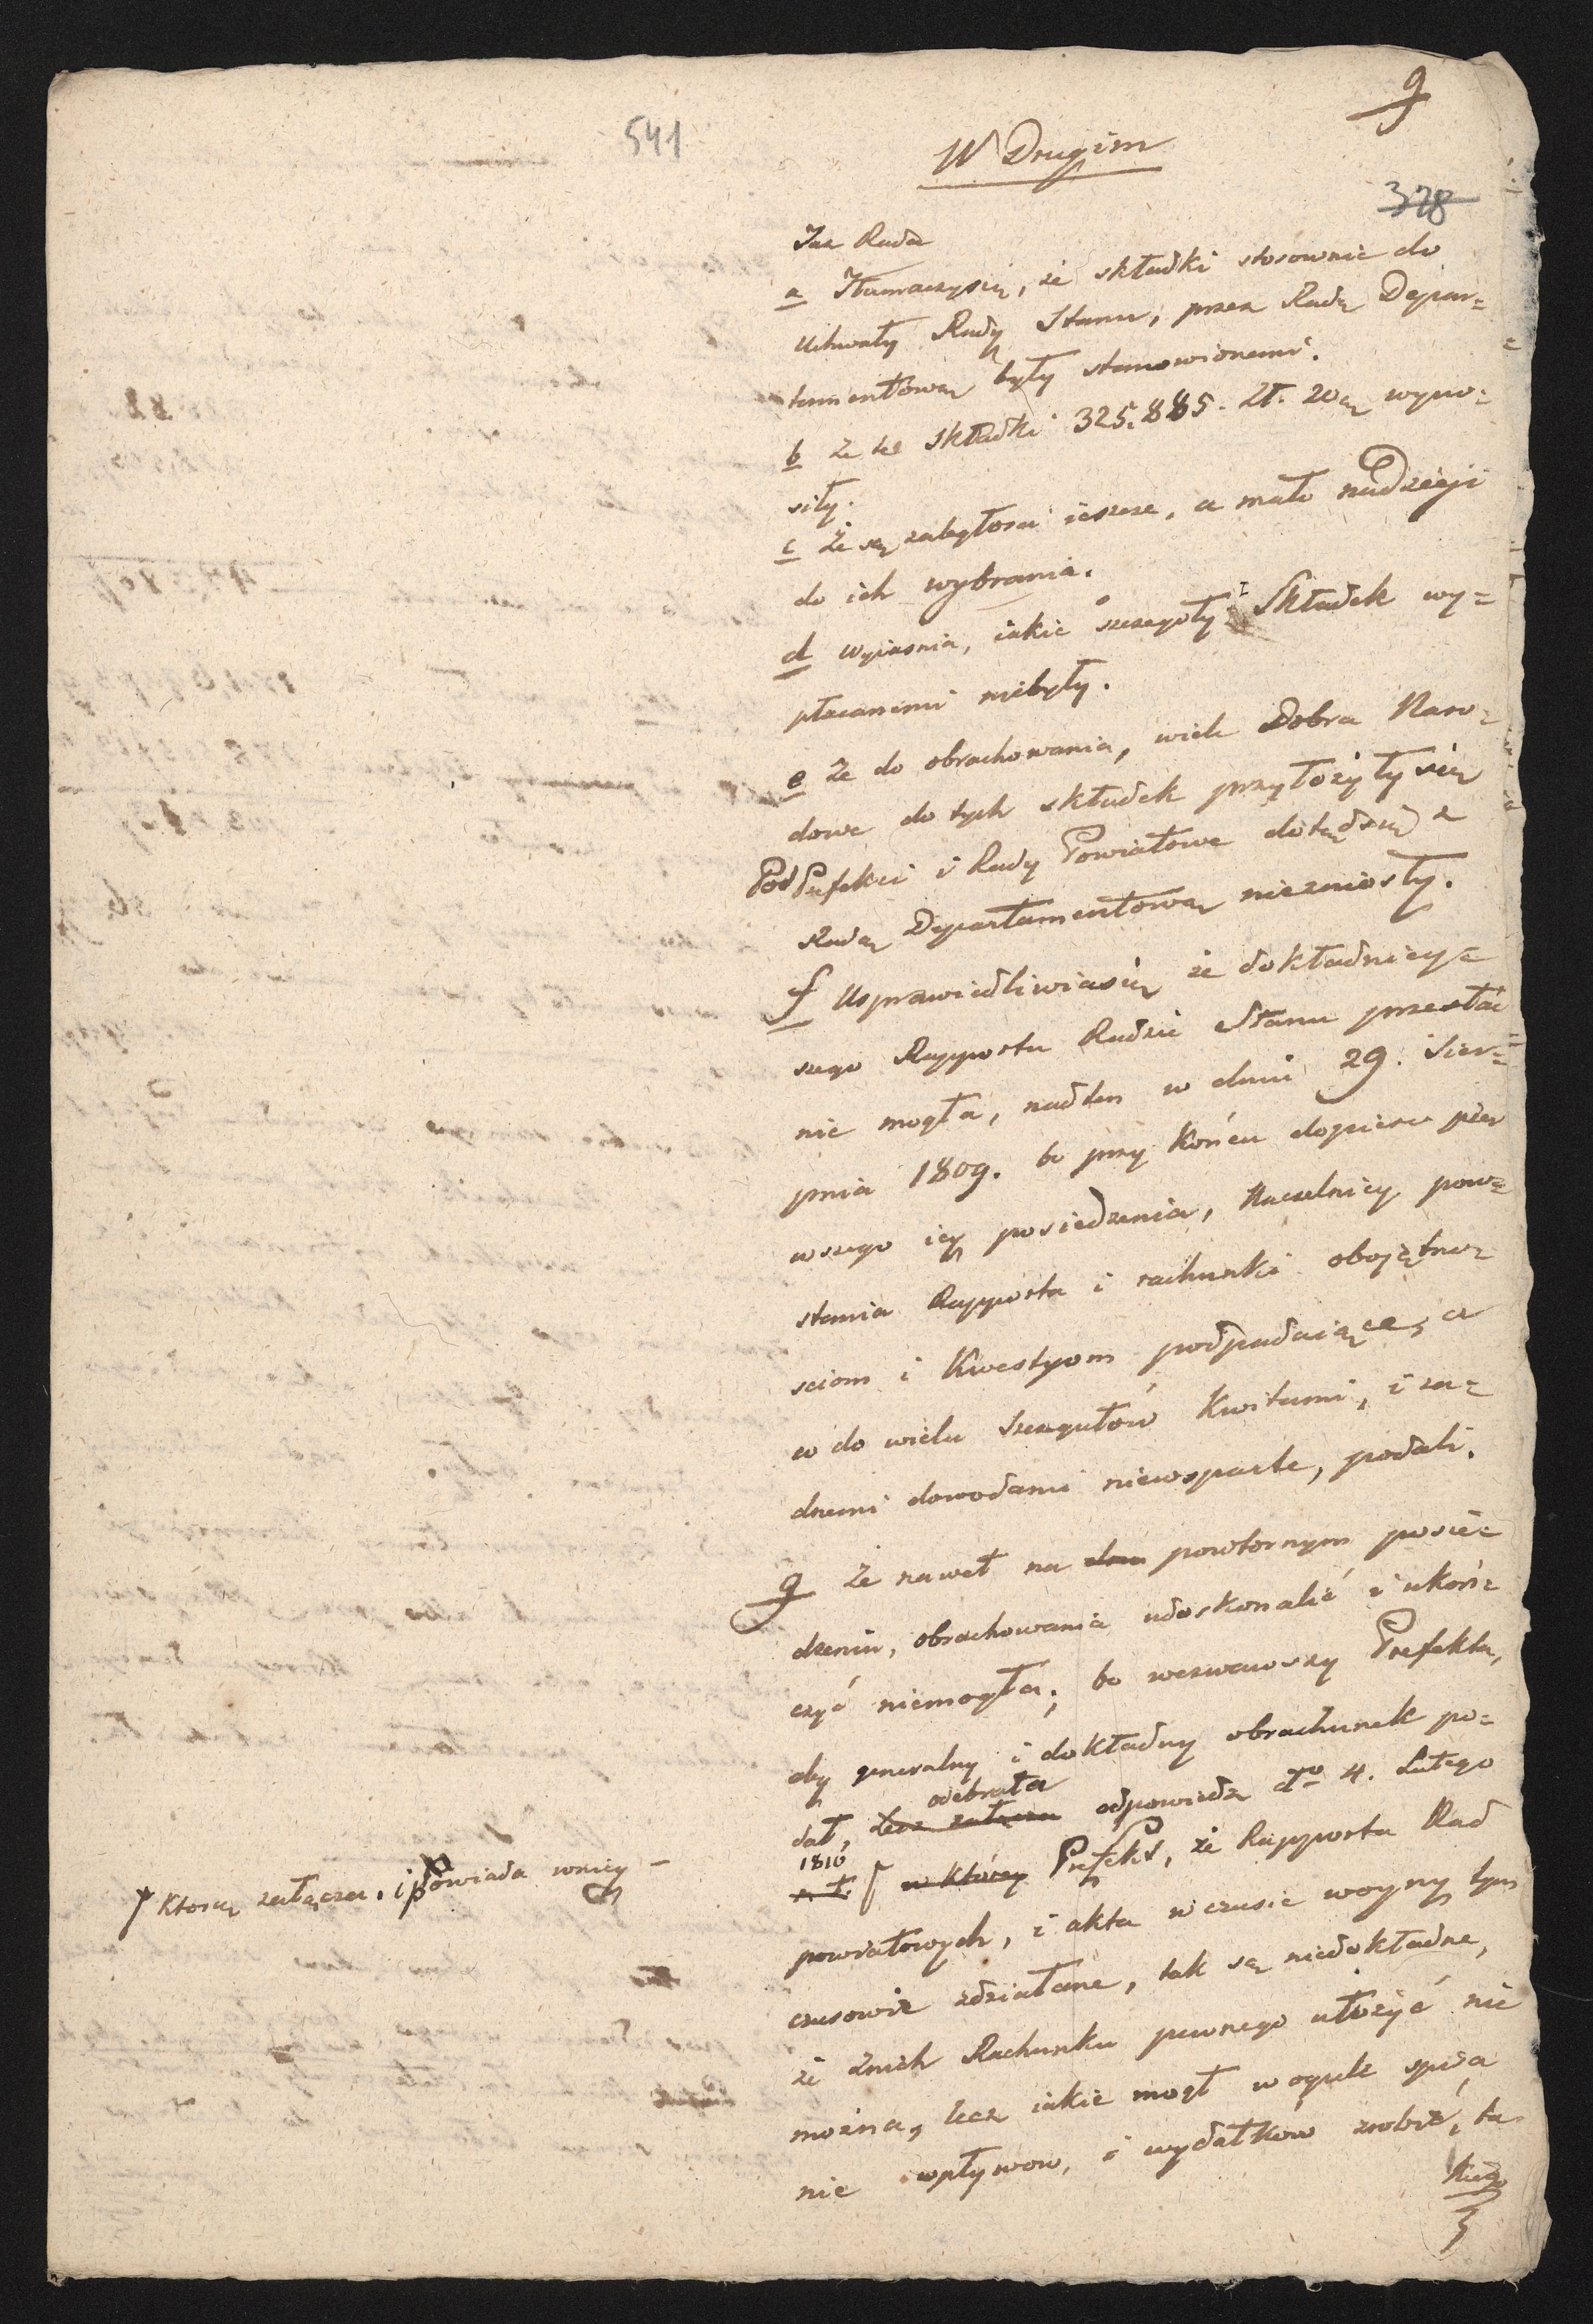 9
541
W Drugim
378
Taz Rada
a Tłumaczysię, że składki stosownie do
Uchwały Rady Stanu, przez Radę Depar=
tamentową były stanowionemi.
b Że te Składki 325,885. Zł. 20 wyno=
siły.
c Że są zaległosci ieszcze, a mało nadzieji
do ich wybrania.
d wyiasnia, iakie szczegoły z Składek wy=
płaconemi niebyły.
e Że do obrachowania, wiele Dobra Naro=
dowe do tych składek przyłożyły się
PodPrefekci i Rady Powiatowe dotąd się z
Radą Departamentową niezniosły.
f Usprawiedliwiasię że dokładniey=
szego Rapportu Radzie Stanu przesłać
nie mogła, nadten w dniu 29. Sier=
pnia 1809. bo przy Końcu dopiero pier
wszego iey posiedzenia, Naczelnicy pow=
stania Rapporta i rachunki obojętno=
sciom i Kwestyom podpadaiące, a
co do wielu Szczegułów Kwitami, i ża=
dnemi dowodami niewsparte, podali.
g Że nawet na powtornym posie=
dzeniu, obrachowania udoskonalić i ukoń=
czyć niemogła; bo wezwawszy Prefekta,
aby generalny i dokładny obrachunek po=
odebrała
dał, Lecz załącza odpowiedz do 4. Lutego
1810
r. t. ƒ w którey Prefekt, że Rapporta Rad
ƒ Ktorą załącza, i powiada wniey –
powiatowych, i akta w czasie woyny tym
czasowie zdziałane, tak są niedokładne,
że Znich Rachunku pewnego ułożyć nie
można, lecz iakie mogł w ogule spisa
nie wpływow, i wydatkow zrobić, ta
kież